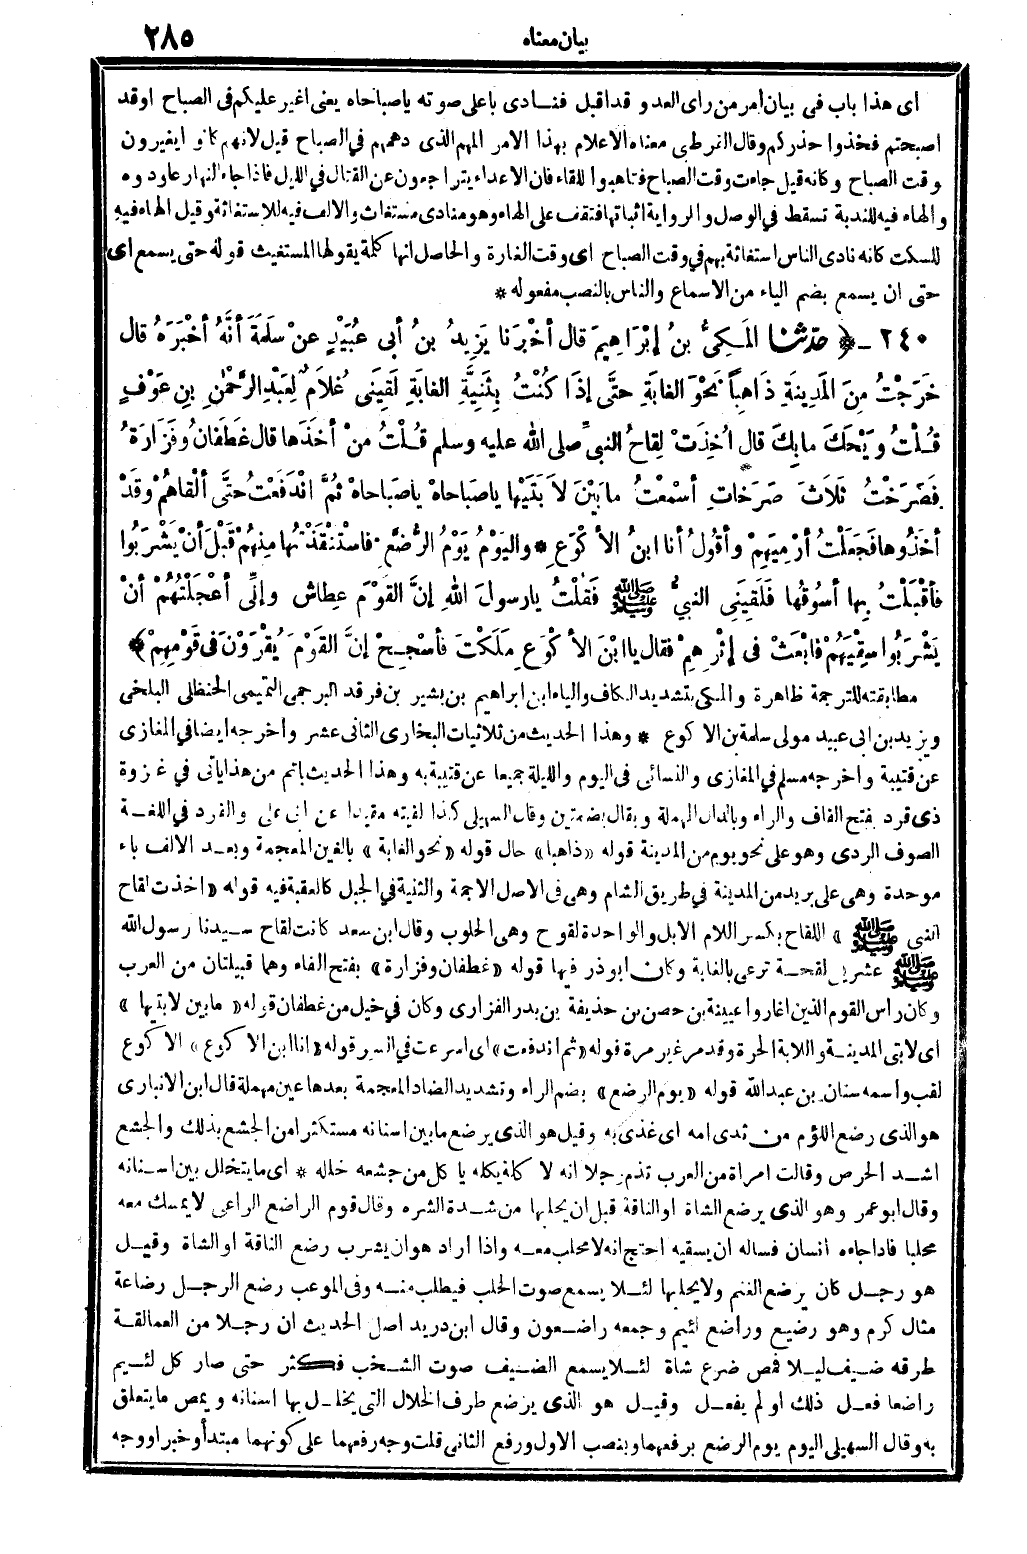 بيان معناه
٢٨٥
اى هذا باب فى بيان امر من راى العدو قد اقبل فنادى باعلى صوته ياصباحاه يعنى اغير عليكم فى الصباح او قد
اصبحتم فخذوا حذركم وقال القرطبى معناه الاعلام بهذا الامر المهم الذى دهمهم فى الصباح قيل لانهم كانوا يغيرون
وقت الصباح وكانه قيل جاءت وقت الصباح فتاهبوا للقاء فان الاعداء يتراجعون عن القتال فى الليل فاذا جاء النهار عاودوه
والهاء فيه للندبة تسقط فى الوصل والرواية اثباتها فتقف على الهاء وهو منادى مستغاث والالف فيه للاستغاثة وقيل الهاء فيه
للسكت كانه نادى الناس استغاثة بهم فى وقت الصباح اى وقت الغارة والحاصل انها كلمة يقولها المستغيث قوله حتى يسمع اى
حتى ان يسمع بضم الياء من الاسماع والناس بالنصب مفعوله *
٢٤٠ ـ ﴿ حَدّثنا المَكِىُّ بنُ إبْرَاهِيمَ قال أخْبَرَنا يَزِيدُ بنُ أبى عُبَيْدٍ عنْ سَلَمَةَ أنَّهُ أخْبَرَهُ قال
خَرَجْتُ مِنَ المَدِينَةِ ذَاهِباً نَحْوَ الغابَةِ حتَّى إذَا كُنْتُ بِثَنِيَّةِ الغابَةِ لَقِيَنى غُلاَمٌ لِعَبْدِ الرَّحْمٰنِ بنِ عَوْفٍ
قُلْتُ وَيْحَكَ مابِكَ قال أُخِذَتْ لِقاحُ النبىِّ صلى الله عليه وسلم قُلْتُ منْ أخَذَها قال غَطَفانُ وفَزَارَةُ
فَصَرَخْتُ ثَلاَثَ صَرَخاتٍ أسْمَعْتُ ما بَيْنَ لاَ بَتَيْها ياصَباحاهْ ياصَباحاهْ ثُمَّ انْدَفَعْتُ حتَّى ألْقاهُمْ وقَدْ
أخَذُوها فَجَعَلْتُ أرْمِيهِمْ وأقُولُ أنا ابنُ الأكْوَعِ * واليَوْمُ يَوْمُ الرُّضَّعِ فاسْتَنْقَذْتُها مِنهُمْ قَبْلَ أنْ يَشْرَبُوا
فأقْبَلْتُ بِها أسُوقُها فَلَقِيَنِى النبىُّ ﷺ فَقلْتُ يارسولَ اللهِ إنَّ القَوْمَ عِطاش وإنِّى أعْجَلْتُهُمْ أنْ
يَشْرَبُوا سِقْيَهُمْ فابْعَثْ فى إثْرِهِمْ فقال ياابْنَ الأكْوَعِ مَلَكْتَ فأسْجِحْ إنَّ القَوْمَ يُقْرَوْنَ فى قَوْمِهِمْ ﴾
مطابقته للترجمة ظاهرة والمكى بتشديد الكاف والياء ابن ابراهيم بن بشير بن فرقد البرجمى التميمى الحنظلى البلخى
ويزيد بن ابى عبيد مولى سلمة بن الاكوع * وهذا الحديث من ثلاثيات البخارى الثانى عشر واخرجه ايضا فى المغازى
عن قتيبة واخرجه مسلم فى المغازى والنسائى فى اليوم والليلة جميعا عن قتيبة به وهذا الحديث باتم من هذا ياتى فى غزوة
ذى قرد بفتح القاف والراء وبالدال المهملة ويقال بضمتين وقال السهيلى كذا لقيته مقيدا عن ابى على والقرد فى اللغة
الصوف الردى وهو على نحو يوم من المدينة قوله «ذاهبا» حال قوله «نحو الغابة» بالغين المعجمة وبعد الالف باء
موحدة وهى على بريد من المدينة فى طريق الشام وهى فى الاصل الاجمة والثنية فى الجبل كالعقبة فيه قوله «اخذت لقاح
النبى ﷺ» اللقاح بكسر اللام الابل والواحدة لقوح وهى الحلوب وقال ابن سعد كانت لقاح سيدنا رسول الله
ﷺ عشرين لقحة ترعى بالغابة وكان ابو ذر فيها قوله «غطفان وفزارة» بفتح الفاء وهما قبيلتان من العرب
وكان راس القوم الذين اغاروا عيينة بن حصن بن حذيفة بن بدر الفزارى وكان فى خيل من غطفان قوله «مابين لابتيها»
اى لابتى المدينة واللابة الحرة وقد مر غير مرة قوله «ثم اندفعت» اى اسرعت فى السير قوله «انا ابن الاكوع» الاكوع
لقب واسمه سنان بن عبدالله قوله «يوم الرضع» بضم الراء وتشديد الضاد المعجمة بعدها عين مهملة قال ابن الانبارى
هو الذى رضع اللؤم من ثدى امه اى غذى به وقيل هو الذى يرضع ما بين اسنانه مستكثرا من الجشع بذلك والجشع
اشد الحرص وقالت امراة من العرب تذم رجلا انه لا كلة يكله ياكل من جشعه خلله * اى ما يتخلل بين اسنانه
وقال ابو عمر وهو الذى يرضع الشاة او الناقة قبل ان يحلبها من شدة الشره وقال قوم الراضع الراعى لا يمسك معه
محلبا فاذا جاءه انسان فساله ان يسقيه احتج انه لا محلب معه واذا اراد هو ان يشرب رضع الناقة او الشاة وقيل
هو رجل كان يرضع الغنم ولا يحلبها لئلا يسمع صوت الحلب فيطلب منه وفى الموعب رضع الرجل رضاعة
مثال كرم وهو رضيع وراضع لئيم وجمعه راضعون وقال ابن دريد اصل الحديث ان رجلا من العمالقة
طرقه ضيف ليلا فمص ضرع شاة لئلا يسمع الضيف صوت الشخب فكثر حتى صار كل لئيم
راضعا فعل ذلك او لم يفعل وقيل هو الذى يرضع طرف الخلال التى يخلل بها اسنانه ويمص مايتعلق
به وقال السهيلى اليوم يوم الرضع برفعهما وبنصب الاول ورفع الثانى قلت وجه رفعهما على كونهما مبتدأ وخبرا ووجه